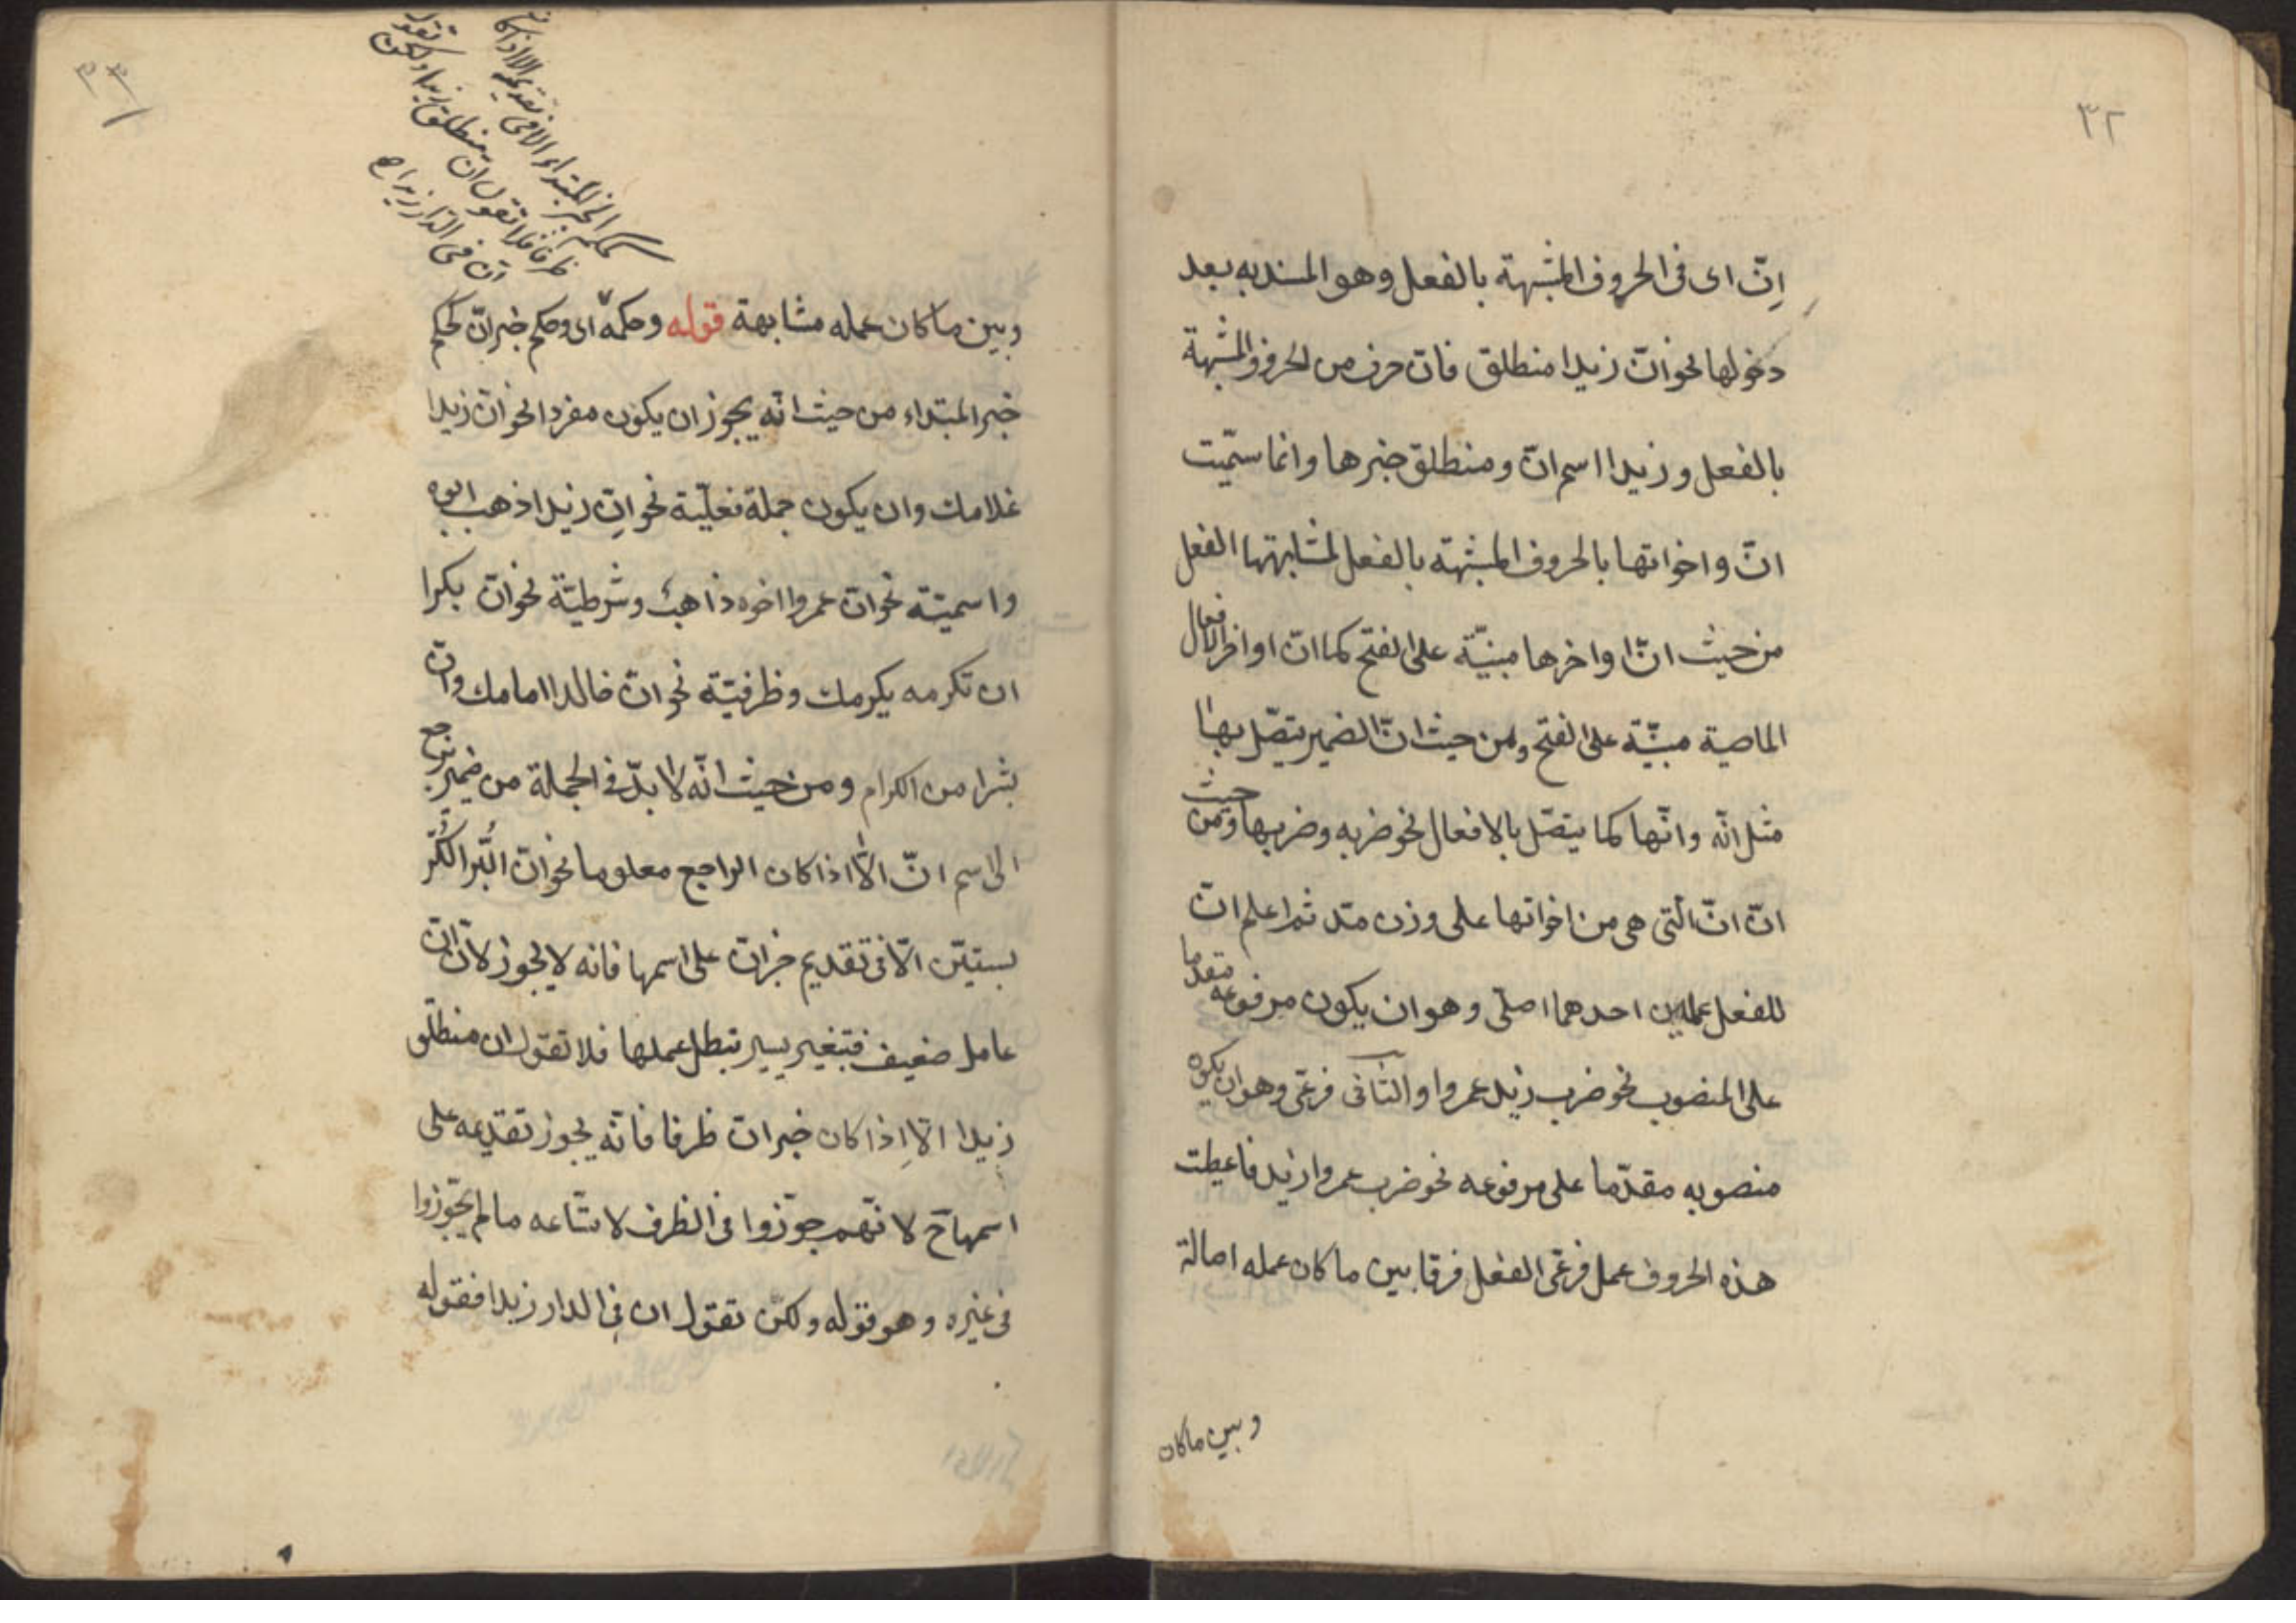 ٣٢
اِنّ اى فى الحروف المشبهة بالفعل وهو المسند به بعد
دخولها نحو انّ زيدا منطلق فانّ حرف من الحروف المشبهة
بالفعل وزيدا اسم انّ ومنطلق خبرها وانما سمّيت
انّ واخواتها بالحروف المشبهة بالفعل لمشابهتها الفعل
من حيث انّ اواخرها مبنيّة على الفتح كما انّ اواخر الافعال
الماضية مبنيّة على الفتح ومن حيث انّ الضمير يتصل بها
مثل انّه وانّها كما يتصل بالافعال نحو ضربه وضربها ومن حيث
انّ انّ التى هى من اخواتها على وزن مدّ ثم اعلم انّ
للفعل عملين احدهما اصلى وهو ان يكون مرفوعه مقدما
على المنصوب نحو ضرب زيد عمروا والثانى فرعى وهو ان يكون
منصوبه مقدّما على مرفوعه نحو ضرب عمروا زيد فاعطيت
هذه الحروف عمل فرعى الفعل فرقا بين ما كان عمله اصالة
وبين ما كان
٣٣
حكمه كخبر المبتداء الا فى تقديمه الا اذا كان
ظرفا فلا تقول ان منطلق زيدا ولكن تقول
ان فى الدار زيدا
وبين ما كان عمله مشابهة قوله وحكمه اى وحكم خبر انّ كحكم
خبر المبتداء من حيث انّه يجوز ان يكون مفردا نحو انّ زيدا
غلامك وان يكون جملة فعليّة نحو انّ زيدا ذهب ابوه
واسميّة نحو انّ عمروا اخوه ذاهب وشرطيّة نحو انّ بكرا
ان تكرمه يكرمك وظرفيّة نحو انّ خالدا امامك وانّ
بشرا من الكرام ومن حيث انّه لا بدّ فى الجملة من ضمير يرجع
الى اسم انّ الّا اذا كان الراجع معلوما نحو انّ البُرّ الكُرّ
بستيّن الّا فى تقديم خبر انّ على اسمها فانه لا يجوز لانّ انّ
عامل ضعيف فبتغيير يسير تبطل عملها فلا تقول ان منطلق
زيدا الّا اذا كان خبر انّ ظرفا فانّه يجوز تقديمه على
اسمها ح لانّهم جوّزوا فى الظرف لاتّساعه ما لم يجوّزوا
فى غيره وهو قوله ولكن تقول ان فى الدار زيدا فقوله